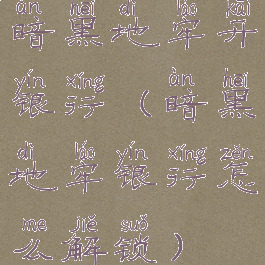 àn hēi dì láo kāi
暗黑地牢开
yín xíng àn hēi
银行(暗黑
dì láo yín xíng zěn
地牢银行怎
me jiě suǒ
么解锁)